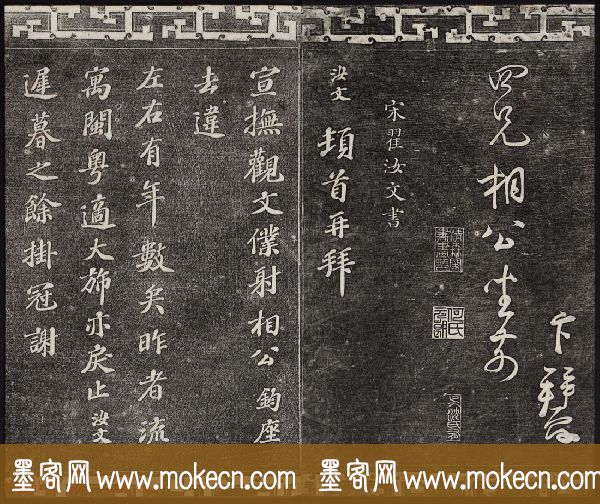 四兄相公坐前
宋翟汝文書
汝文 頓首再拜
宣撫觀文僕射相公 鈞座
去違
左右有年數矣昨者流
寓閩粵適大斾亦戾止汝文
遲暮之餘掛冠謝
墨客网 www.mokecn.com 墨客网 www.mokecn.com